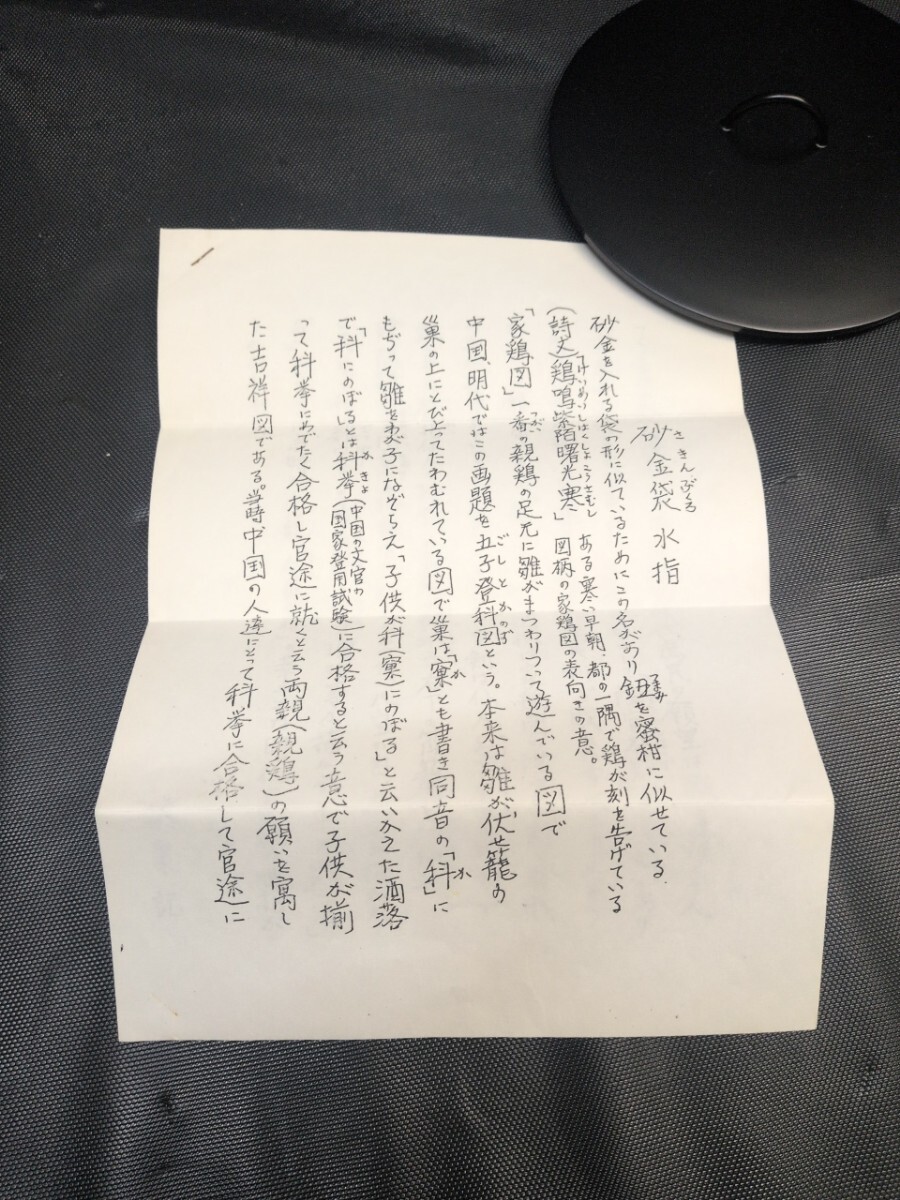 砂金袋 水指
さ きん ぶくろ
砂金を入れる袋の形に似ているためにこの名があり鈕を蜜柑に似せている.
(詩文)「鶏鳴紫陌曙光寒」 ある寒い早朝、都の一隅で鶏が刻を告げている
けいめいしはくしょこうさむし
図柄の家鶏図の表向きの意。
「家鶏図」一番の親鶏の足元に雛がまつわりついて遊んでいる図で
つがい
中国、明代ではこの画題を五子登科図という。本来は雛が伏せ籠の
ご し と か のぼ
巣の上にとび上ってたわむれている図で巣は「窠」とも書き同音の「科」に
か
か
もぢって雛をわが子になぞらえ「子供が科(窠)にのぼる」と云いかえた洒落
で「科にのぼる」とは科挙(中国の文官の国家登用試験)に合格すると云う意で子供が揃
か きょ
って科挙にめでたく合格し官途に就くと云う両親(親鶏)の願いを寓し
た吉祥図である。当時中国の人達にとって科挙に合格して官途に